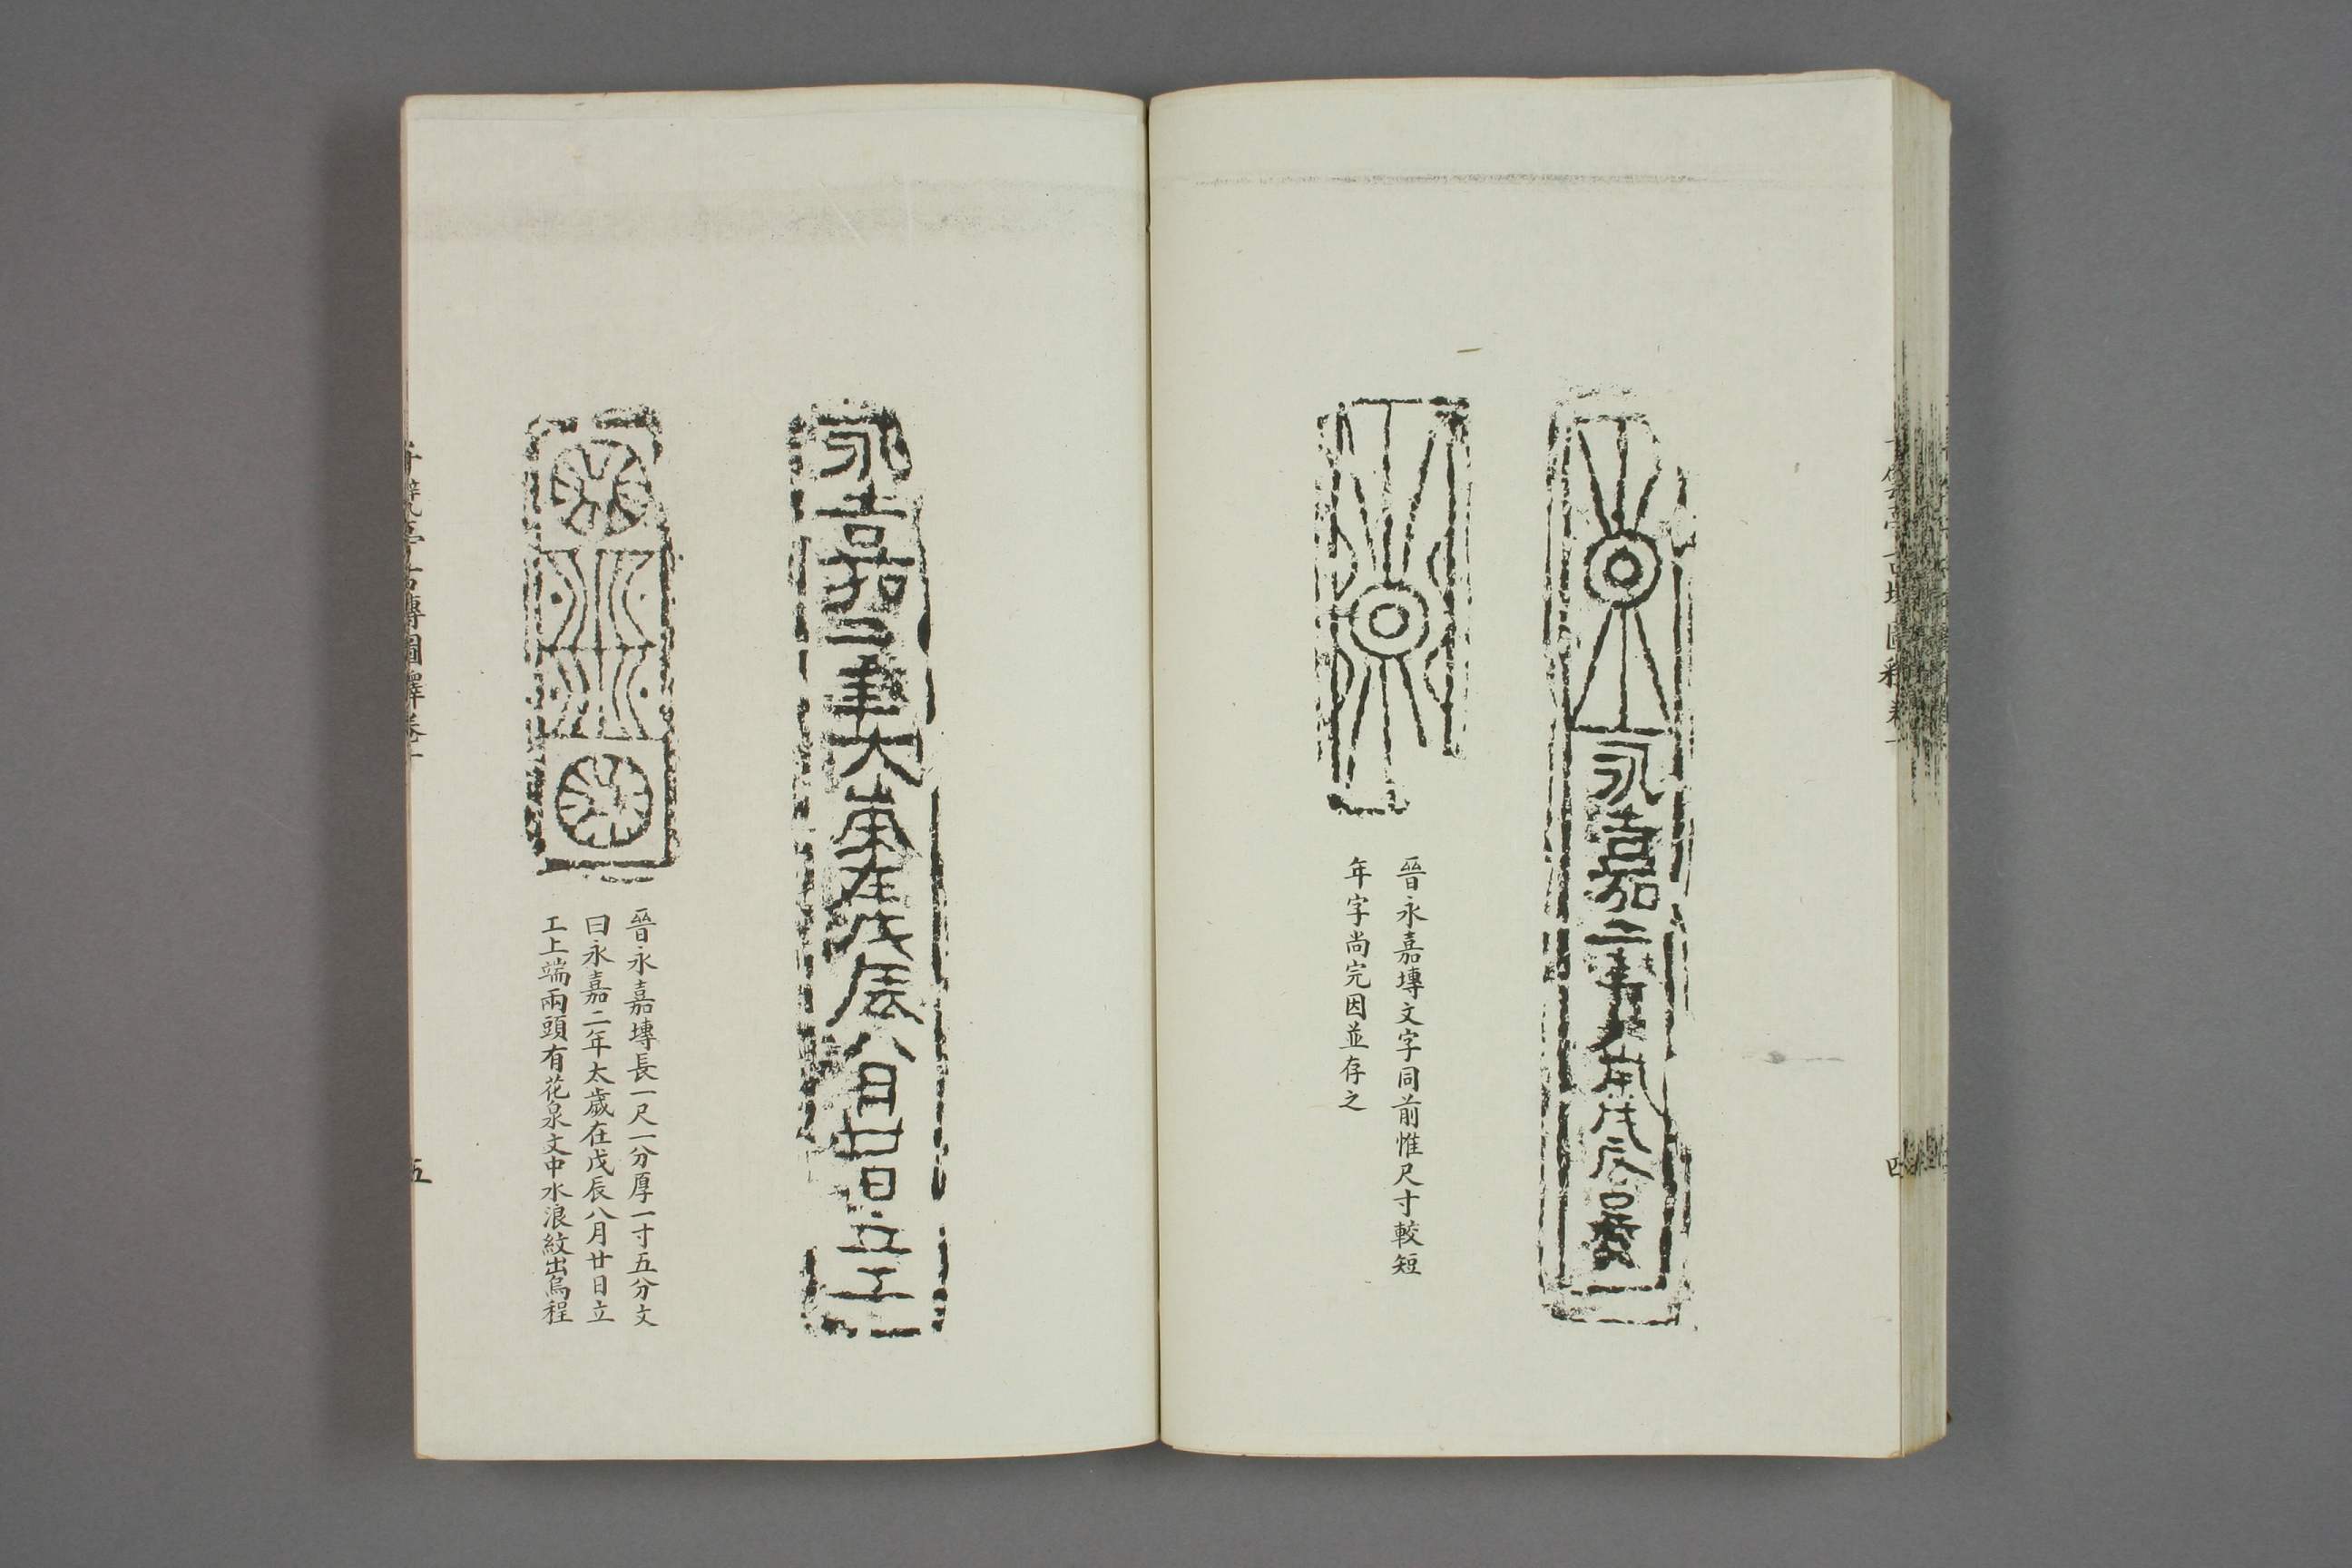 永嘉二年太歲戊辰
晉永嘉塼文字同前惟尺寸較短
年字尚完因並存之
永嘉二年太歲在戊辰八月廿日立工
晉永嘉塼長一尺一分厚一寸五分文
曰永嘉二年太歲在戊辰八月廿日立
工上端兩頭有花泉文中水浪紋出烏程
古塼圖釋卷一
五